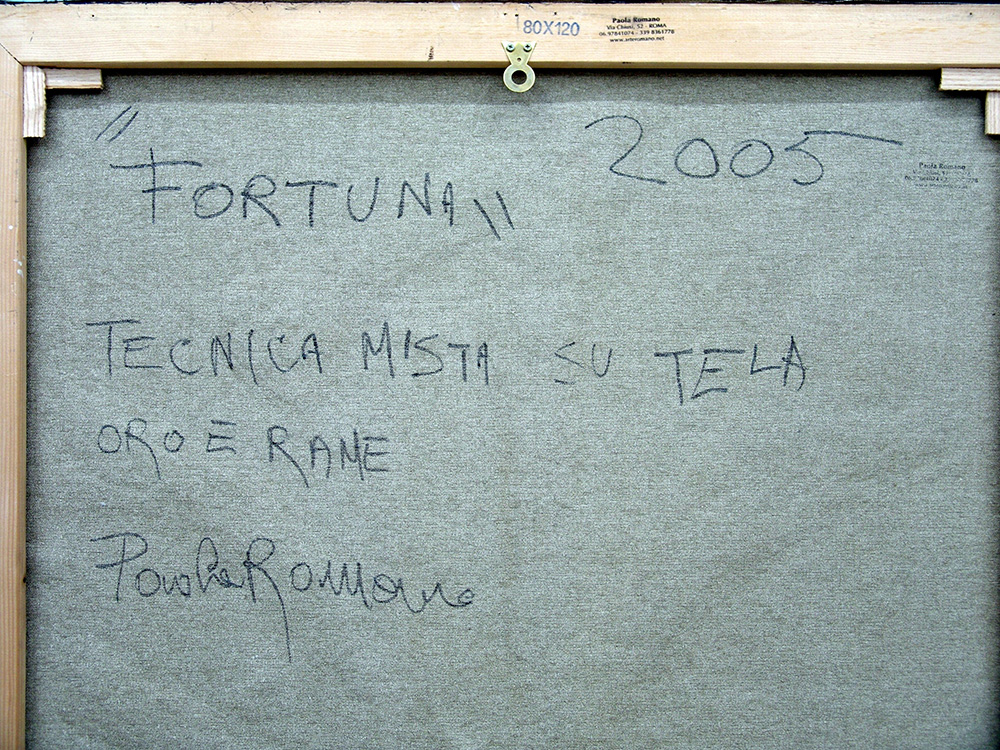 80X120
Paola Romano
Via Chiusi, 52 - ROMA
06 97841074 - 339 8361778
www.arteromano.net
"FORTUNA" 2005
Paola Romano
TECNICA MISTA SU TELA
ORO E RAME
Paola Romano